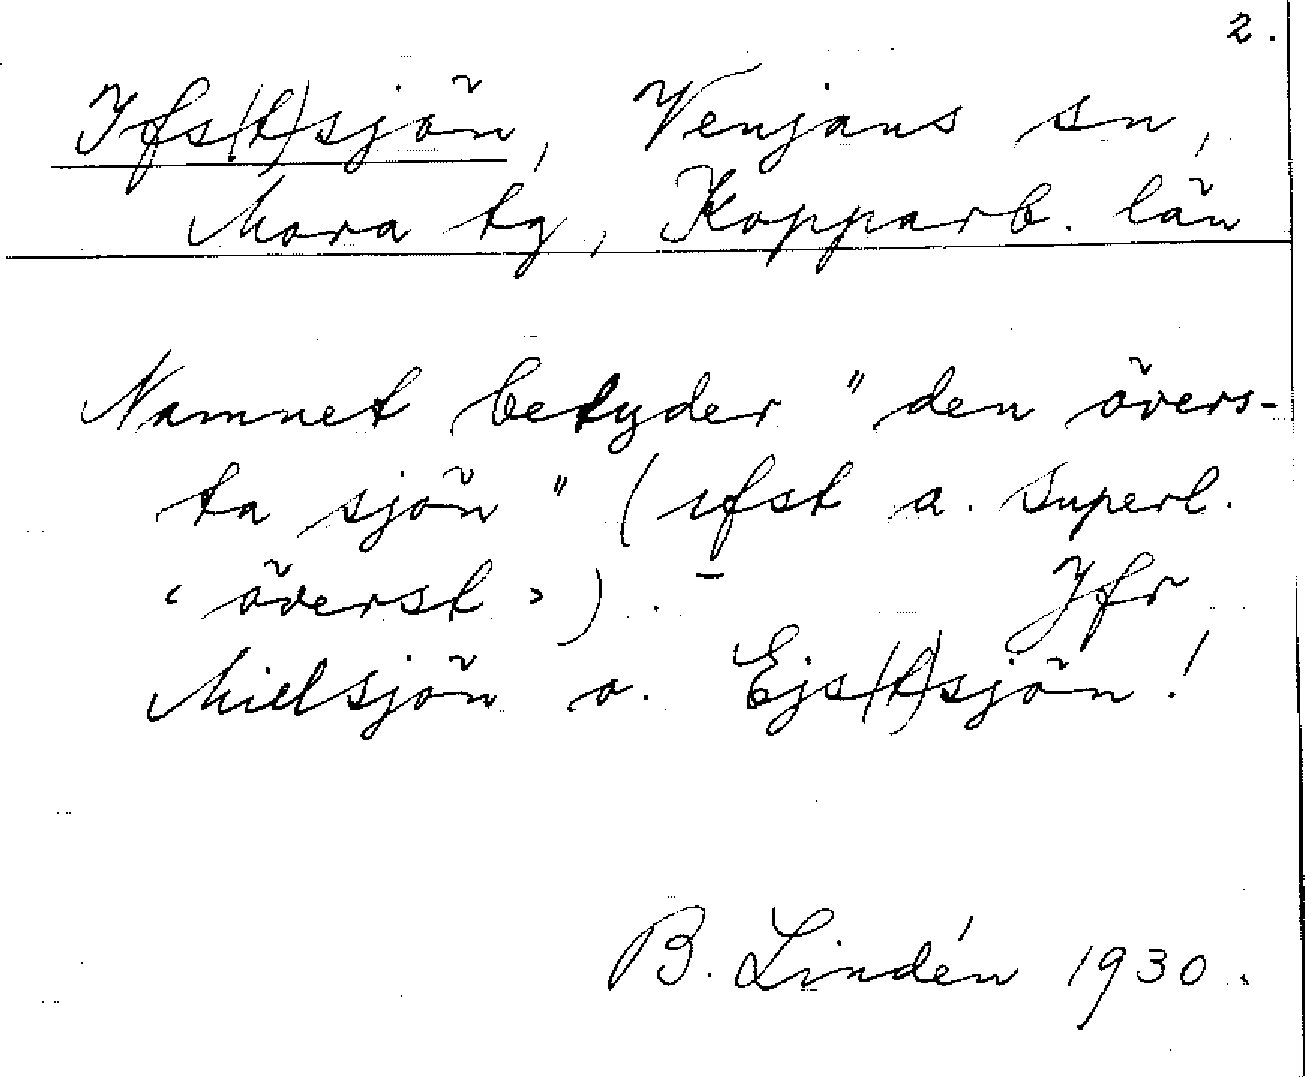 2.
Ifs(t)sjön, Venjans sn,
Mora tg, Kopparb. län
Namnet betyder "den övers-
ta sjön" (ifst a. superl.
‹ överst ›). – Jfr
Mielsjön o. Ejs(t)sjön!
B. Lindén 1930.